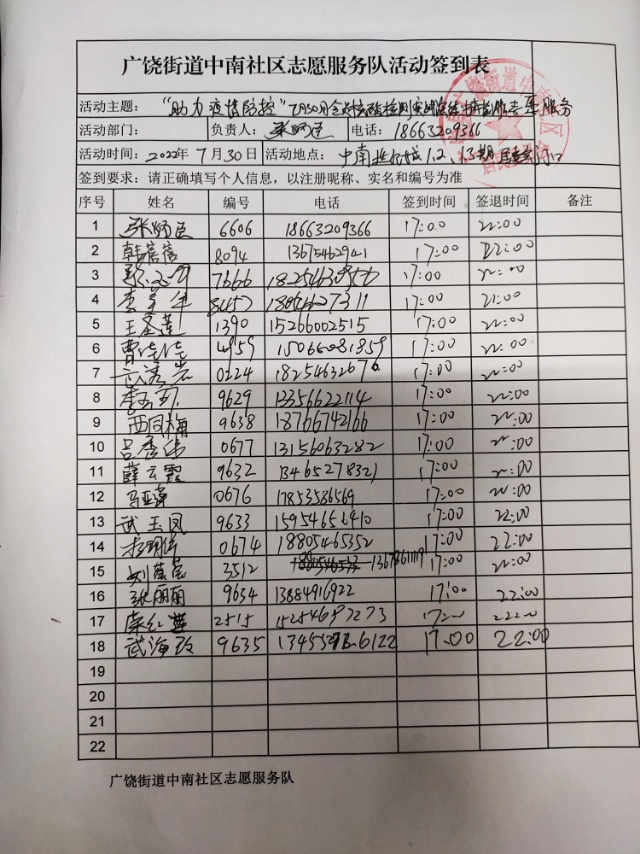 广饶街道中南社区志愿服务队活动签到表
活动主题: "助力疫情防控" 7月30日全员核酸检测 志愿服务
活动部门: 负责人: 电话: 18663209366
活动时间: 2022年7月30日 活动地点: 中南 1.2、1.3期
签到要求: 请正确填写个人信息，以注册昵称、实名和编号为准
序号 姓名 编号 电话 签到时间 签退时间 备注
1 6606 18663209366 17:00 22:00
2 韩蓓蓓 8094 13675462941 17:00 22:00
3 7866 17:00 22:00
4 8457 17:00 21:00
5 王圣莲 1390 15266002515 17:00 22:00
6 曹佳佳 4959 15066081859 17:00 22:00
7 0224 18254632676 17:00 22:00
8 9629 13356622114 17:00 22:00
9 西同梅 9638 18766742166 17:00 22:00
10 吕秀伟 0677 13156063282 17:00 22:00
11 薛云霞 9632 13465278321 17:00 22:00
12 马亚萍 0676 17853536569 17:00 22:00
13 武玉凤 9633 15954656410 17:00 22:00
14 0674 18805465352 17:00 22:00
15 刘蓓蓓 3512 17:00 22:00
16 张丽丽 9634 13884916922 17:00 22:00
17 荣红燕 2515 15254697273 17:00 22:00
18 武海玲 9635 17:00 22:00
19
20
21
22
广饶街道中南社区志愿服务队